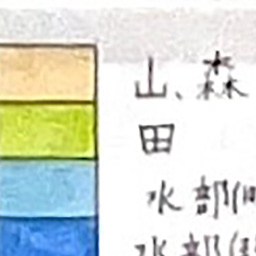 山、森
田
水部(
水部(